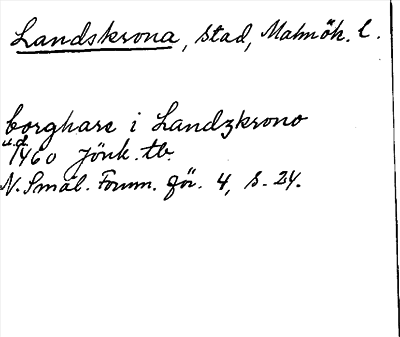 Landskrona, stad, Malmöh. l.
borghare i Landzkrono
u.d.
1460 Jönk. tb.
N. Smål. Fornm.för. 4, s. 24.